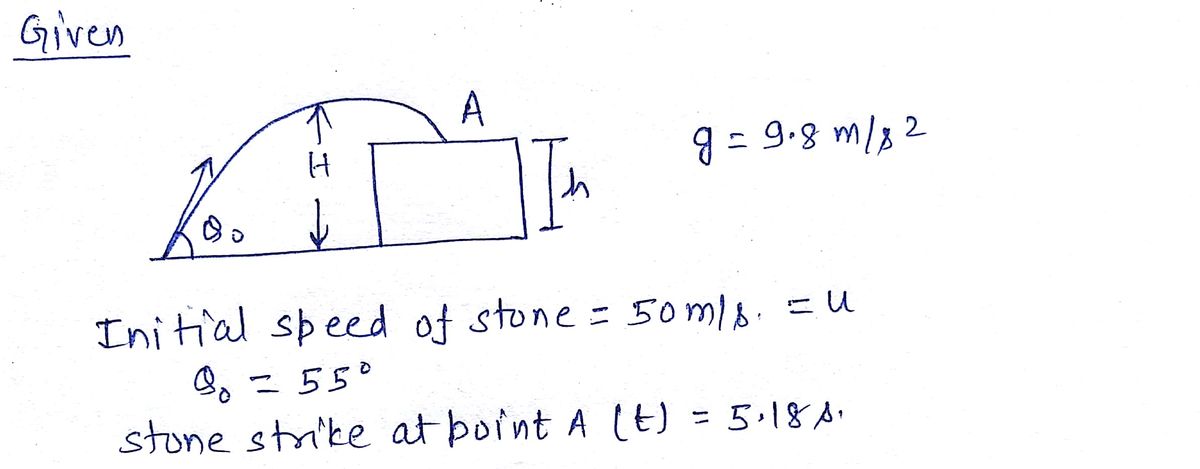 Given
A
H
h
g = 9.8 m/s2
θ0
Initial speed of stone = 50 m/s. = u
θ0 = 55°
stone strike at point A (t) = 5.18 s.